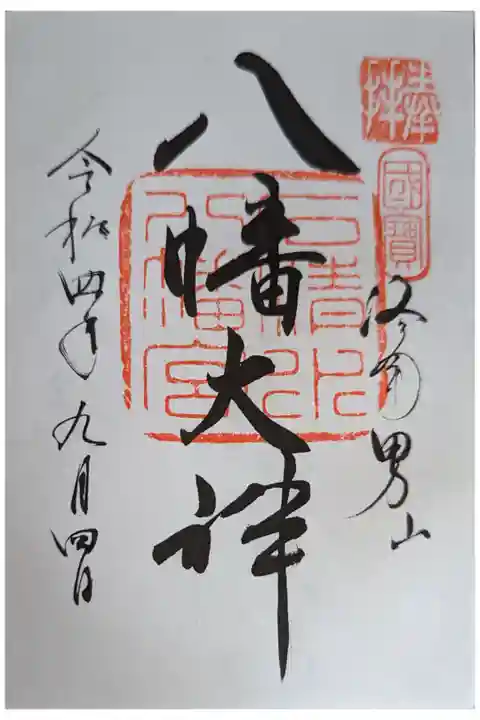 奉拝
國寶
洛南男山
八幡大神
石清水八幡宮
令和四年九月四日